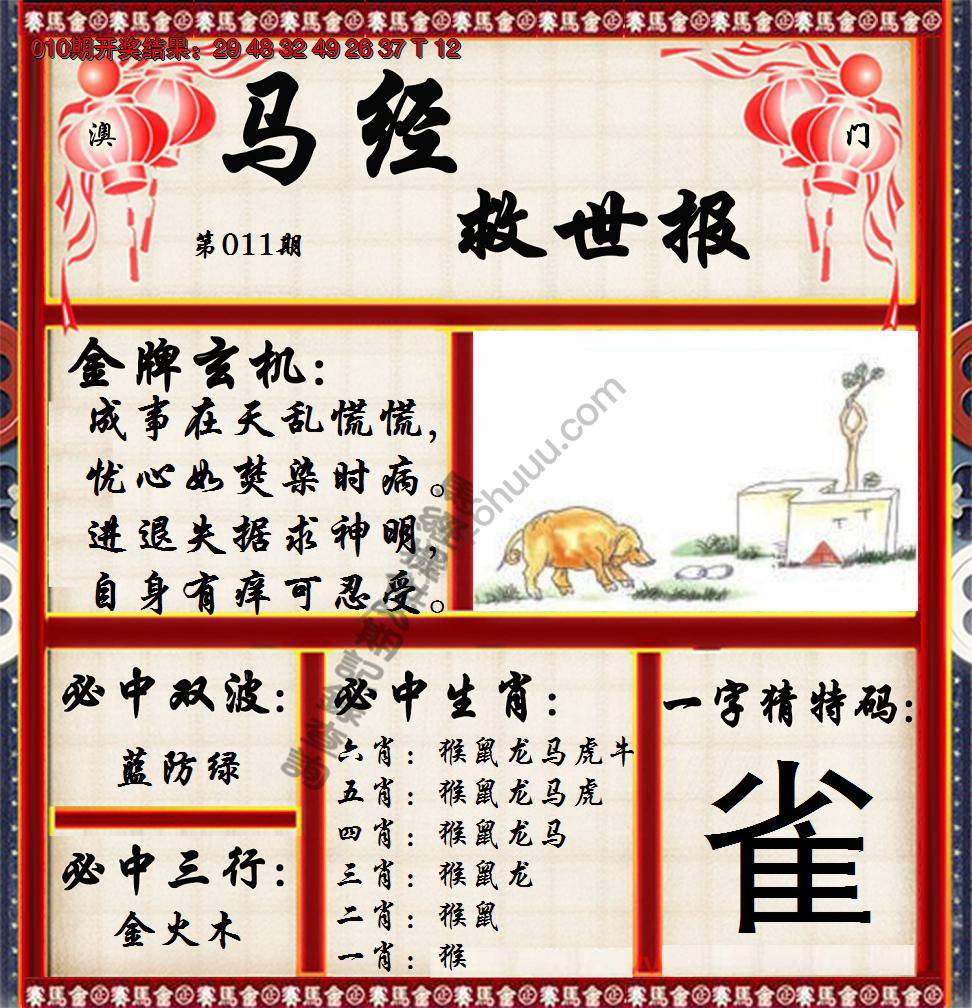 010期开奖结果：29 48 32 49 26 37 T 12
澳
门
马经
救世报
第011期
金牌玄机：
成事在天乱慌慌，
忧心如焚染时病。
进退失据求神明，
自身有痒可忍受。
必中双波：
蓝防绿
必中三行：
金火木
必中生肖：
六肖：猴鼠龙马虎牛
五肖：猴鼠龙马虎
四肖：猴鼠龙马
三肖：猴鼠龙
二肖：猴鼠
一肖：猴
一字猜特码：
雀